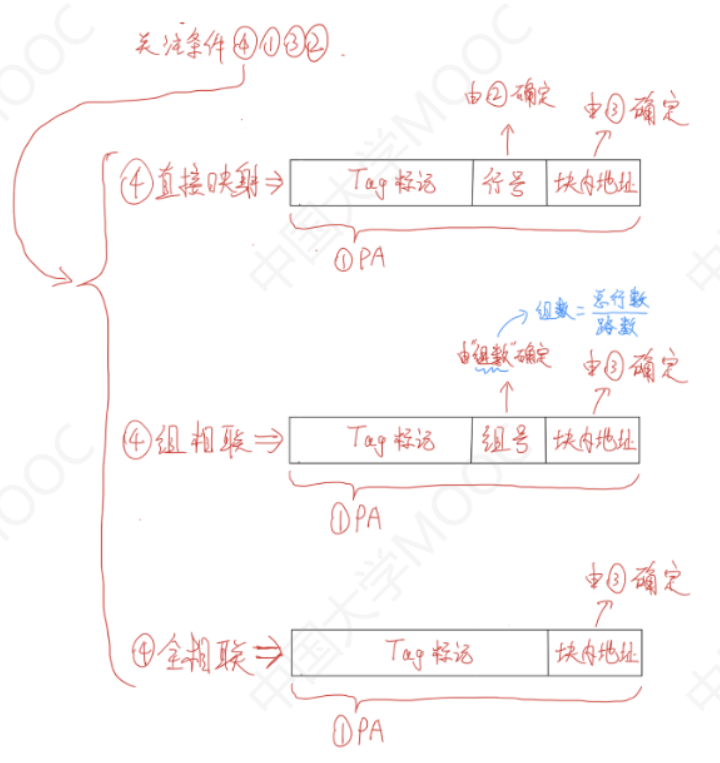 关注条件④①③②.
由②确定 由③确定
④直接映射⇒ Tag标记 行号 块内地址
①PA
组数=总行数/路数
由"组数"确定 由③确定
④组相联⇒ Tag标记 组号 块内地址
①PA
由③确定
④全相联⇒ Tag标记 块内地址
①PA
中国大学MOOC
中国大学MOOC
中国大学MOOC
MOOC
MOOC